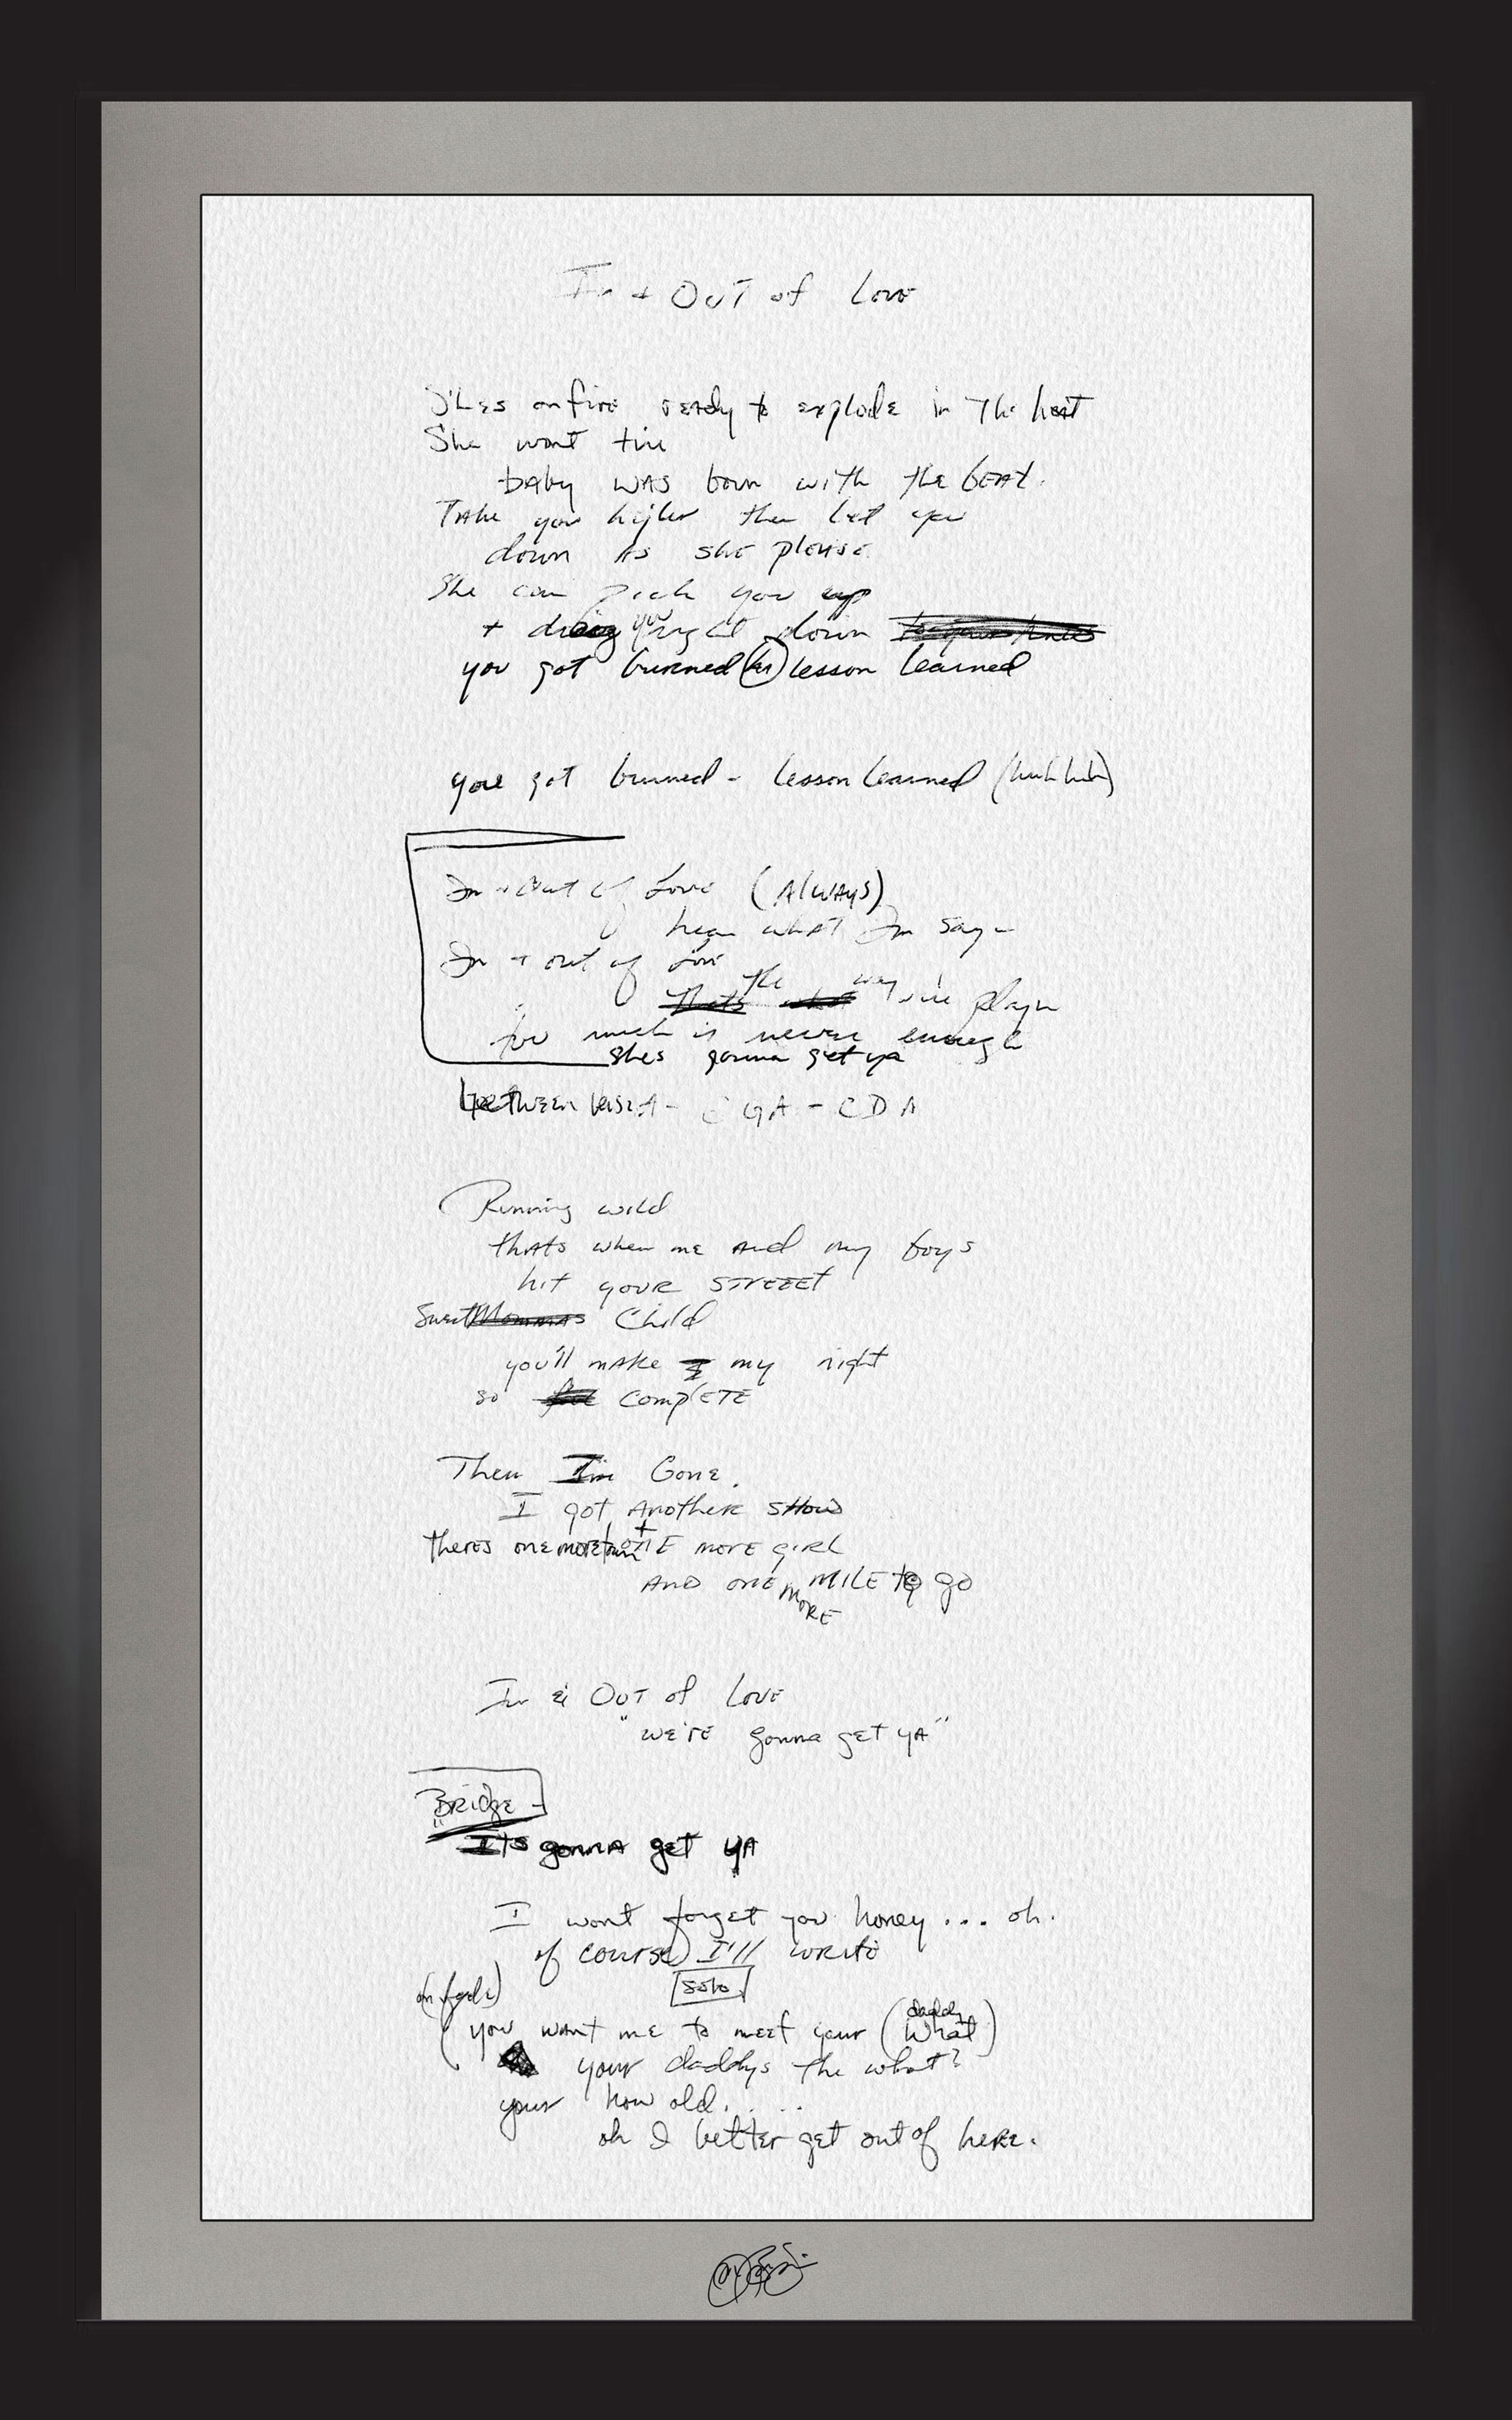 In + OUT of Love
She's on fire ready to explode in the heat
She wont tire
baby was born with the beat.
Take you higher then let you
down as she please
She can pick you up
+ drag you right down to your knees
you got burned lesson learned
youe got burned - lesson learned (huh huh)
In + Out of Love (Always)
hear what Im sayin
In + out of Love
Thats what the way were playin
too much is never enough
shes gonna get ya
between verse A - C G A - C D A
Running wild
thats when me and my boys
hit your street
Sweet Mommas Child
you'll make my night
so complete
Then I'm Gone.
I got Another show
theres one more town + one more girl
AND ONE MORE MILE to go
In & Out of Love
"we're gonna get ya"
Bridge -
"Its gonna get ya
I wont forget you honey... oh.
of course I'll write
(on fade) solo
(you want me to meet your (daddy What)
your daddys the what?
your how old.....
oh I better get out of here.